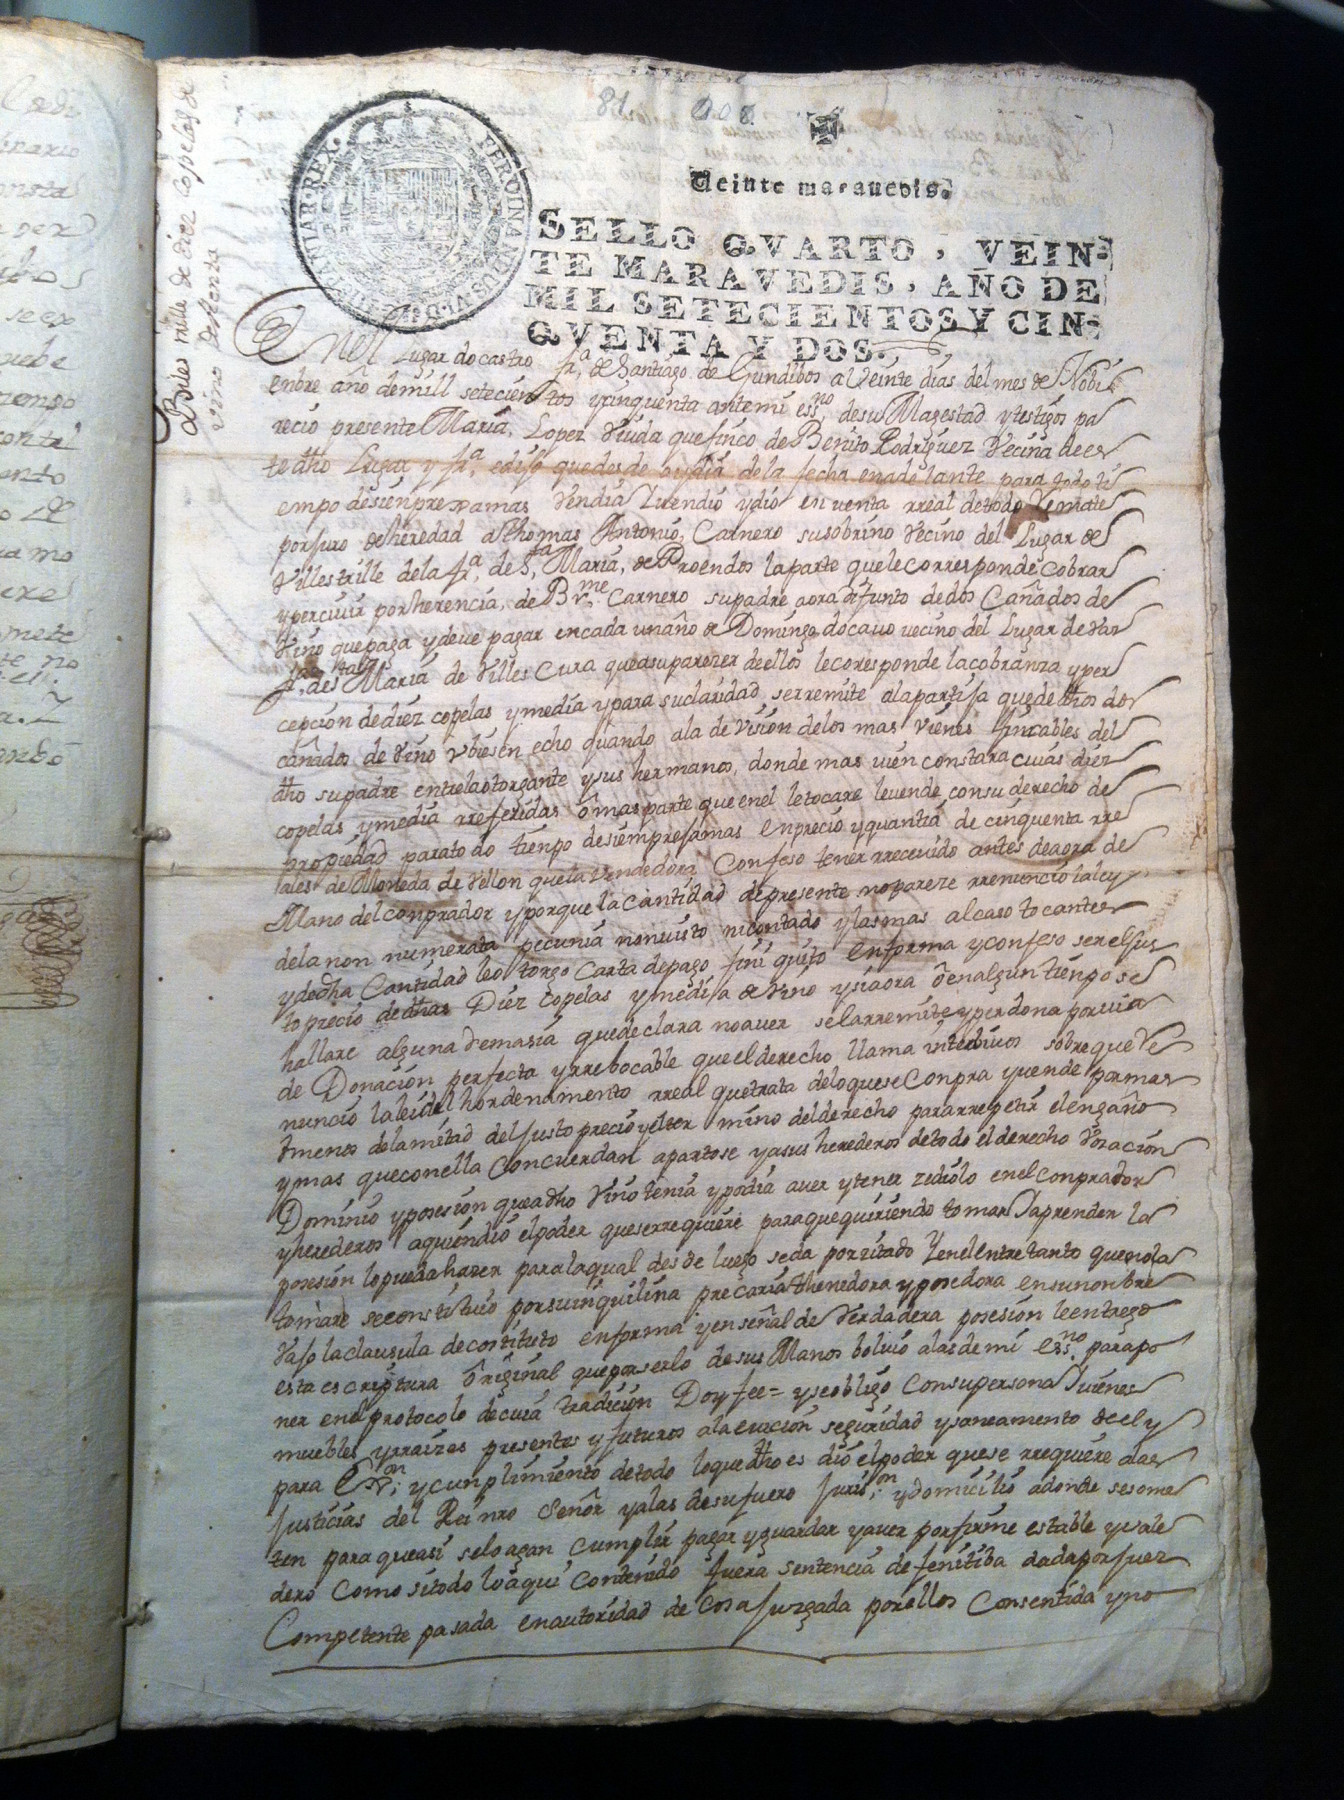 81
Veinte maravedis.
SELLO QVARTO, VEIN-
TE MARAVEDIS, AÑO DE
MIL SETECIENTOS Y CIN-
QVENTA Y DOS.
FERDINANDUS VI D G HISPANIAR REX
mill de diez copelas de
vino de Renta
En el Lugar do castro fra, de Santiago de Gundibos a Veinte dias del mes de Nobi
enbre año demill setecien tos ycinquenta antemi essno, desu Magestad ytestigos pa
recio presente Maria, Lopez Viuda quefinco de Benito Rodriguez Vecina de es
te dho Lugar y fra, edijo quedesde oydia dela fecha enadelante para todo ti
empo desienpre xamas Vendia Yvendio ydio en venta rreal detodo Remate
porjuro de heredad a Thomas Antonio, Carnero susobrino Vecino del Lugar de
Villestrille dela fra, de Sta, Maria, de Proendos laparte quele corresponde cobrar
ypercivir porherencia, de Bme Carnero supadre aora difunto dedos Cañados de
Vino quepaga ydeve pagar encada unaño de Domingo docavo vecino del Lugar de
fra, de sta Maria de Villes Cura queasuparezer deellos lecoresponde lacobranza yper
cepcion dediez copelas ymedia ypara suclaridad, serremite alapartija quede dhos dos
cañados de Vino Vbiesen echo quando ala de Vision delos mas Vienes fincables del
dho supadre entrelaotorgante ysus hermanos, donde mas vien constara cuias diez
copelas ymedia rreferidas ô mas parte que enel letocare levende consu derecho de
propiedad paratodo tienpo desiempre jamas Enprecio yquantia de cinquenta rre
ales de Moneda de Vellon quela Vendedora Confeso tener rrecevido antes deaora de
Mano del conprador yporque la Cantidad depresente nopareze rrenuncio laley
dela non numerata pecunia nonvisto nicontado ylasmas alcaso tocantes
ydedha Cantidad leo torgo Carta depago fini quito Enforma yconfeso serelJus
to precio de dhas Diez copelas ymedia de Vino ysiaora ô enalgun tienpo se
hallare alguna demasia quedeclara noaver selarremite yperdona porvia
de Donacion perfecta yrrebocable que el derecho llama interbivos sobreque Re
nuncio laleidel hordenamento rreal quetrata deloquese Conpra yvende por mas
Ymenos delamitad del Justo precio yelter mino del derecho pararrepetir elengaño
ymas queconella concuerdan apartose yasus herederos detodo el derecho Vsacion
Dominio yposesion queadho Vino tenia ypodia aver ytener zediolo enel conprador
yherederos aquiendio elpoder queserrequiere paraquequiriendo tomar Japrender la
posesion lopueda hazer paralaqual desde luego seda porzitado Yenelentretanto quenola
tomare seconstibuio porsuinquilina precaria thenedora yposedora ensunonbre
Vajo laclausula deconstituto enforma yenseñal de Verdadera posesion leentrego
esta escriptura original queporserlo desus Manos bolvio alasdemi essno, parapo
ner enelprotocolo decuia tradicion Doyfee= yseobligo Consupersona Jvienes
muebles yrraizes presentes yfuturos alaevicion seguridad ysaneamento deel y
para Exon; ycunplimiento detodo loquedho es dio elpoder quese rrequiere alas
Justicias del Rei nro Señor yalas desufuero Jurison; ydomicilio adonde sesome
ten paraqueasi selo agan cumplir pagar yguardar yaver porfirme estable yvale
dero como sitodo lo aqui contenido fuera sentencia defenitiba dadaporjuez
Competente pasada enautoridad de cosajuzgada porellos Consentida yno